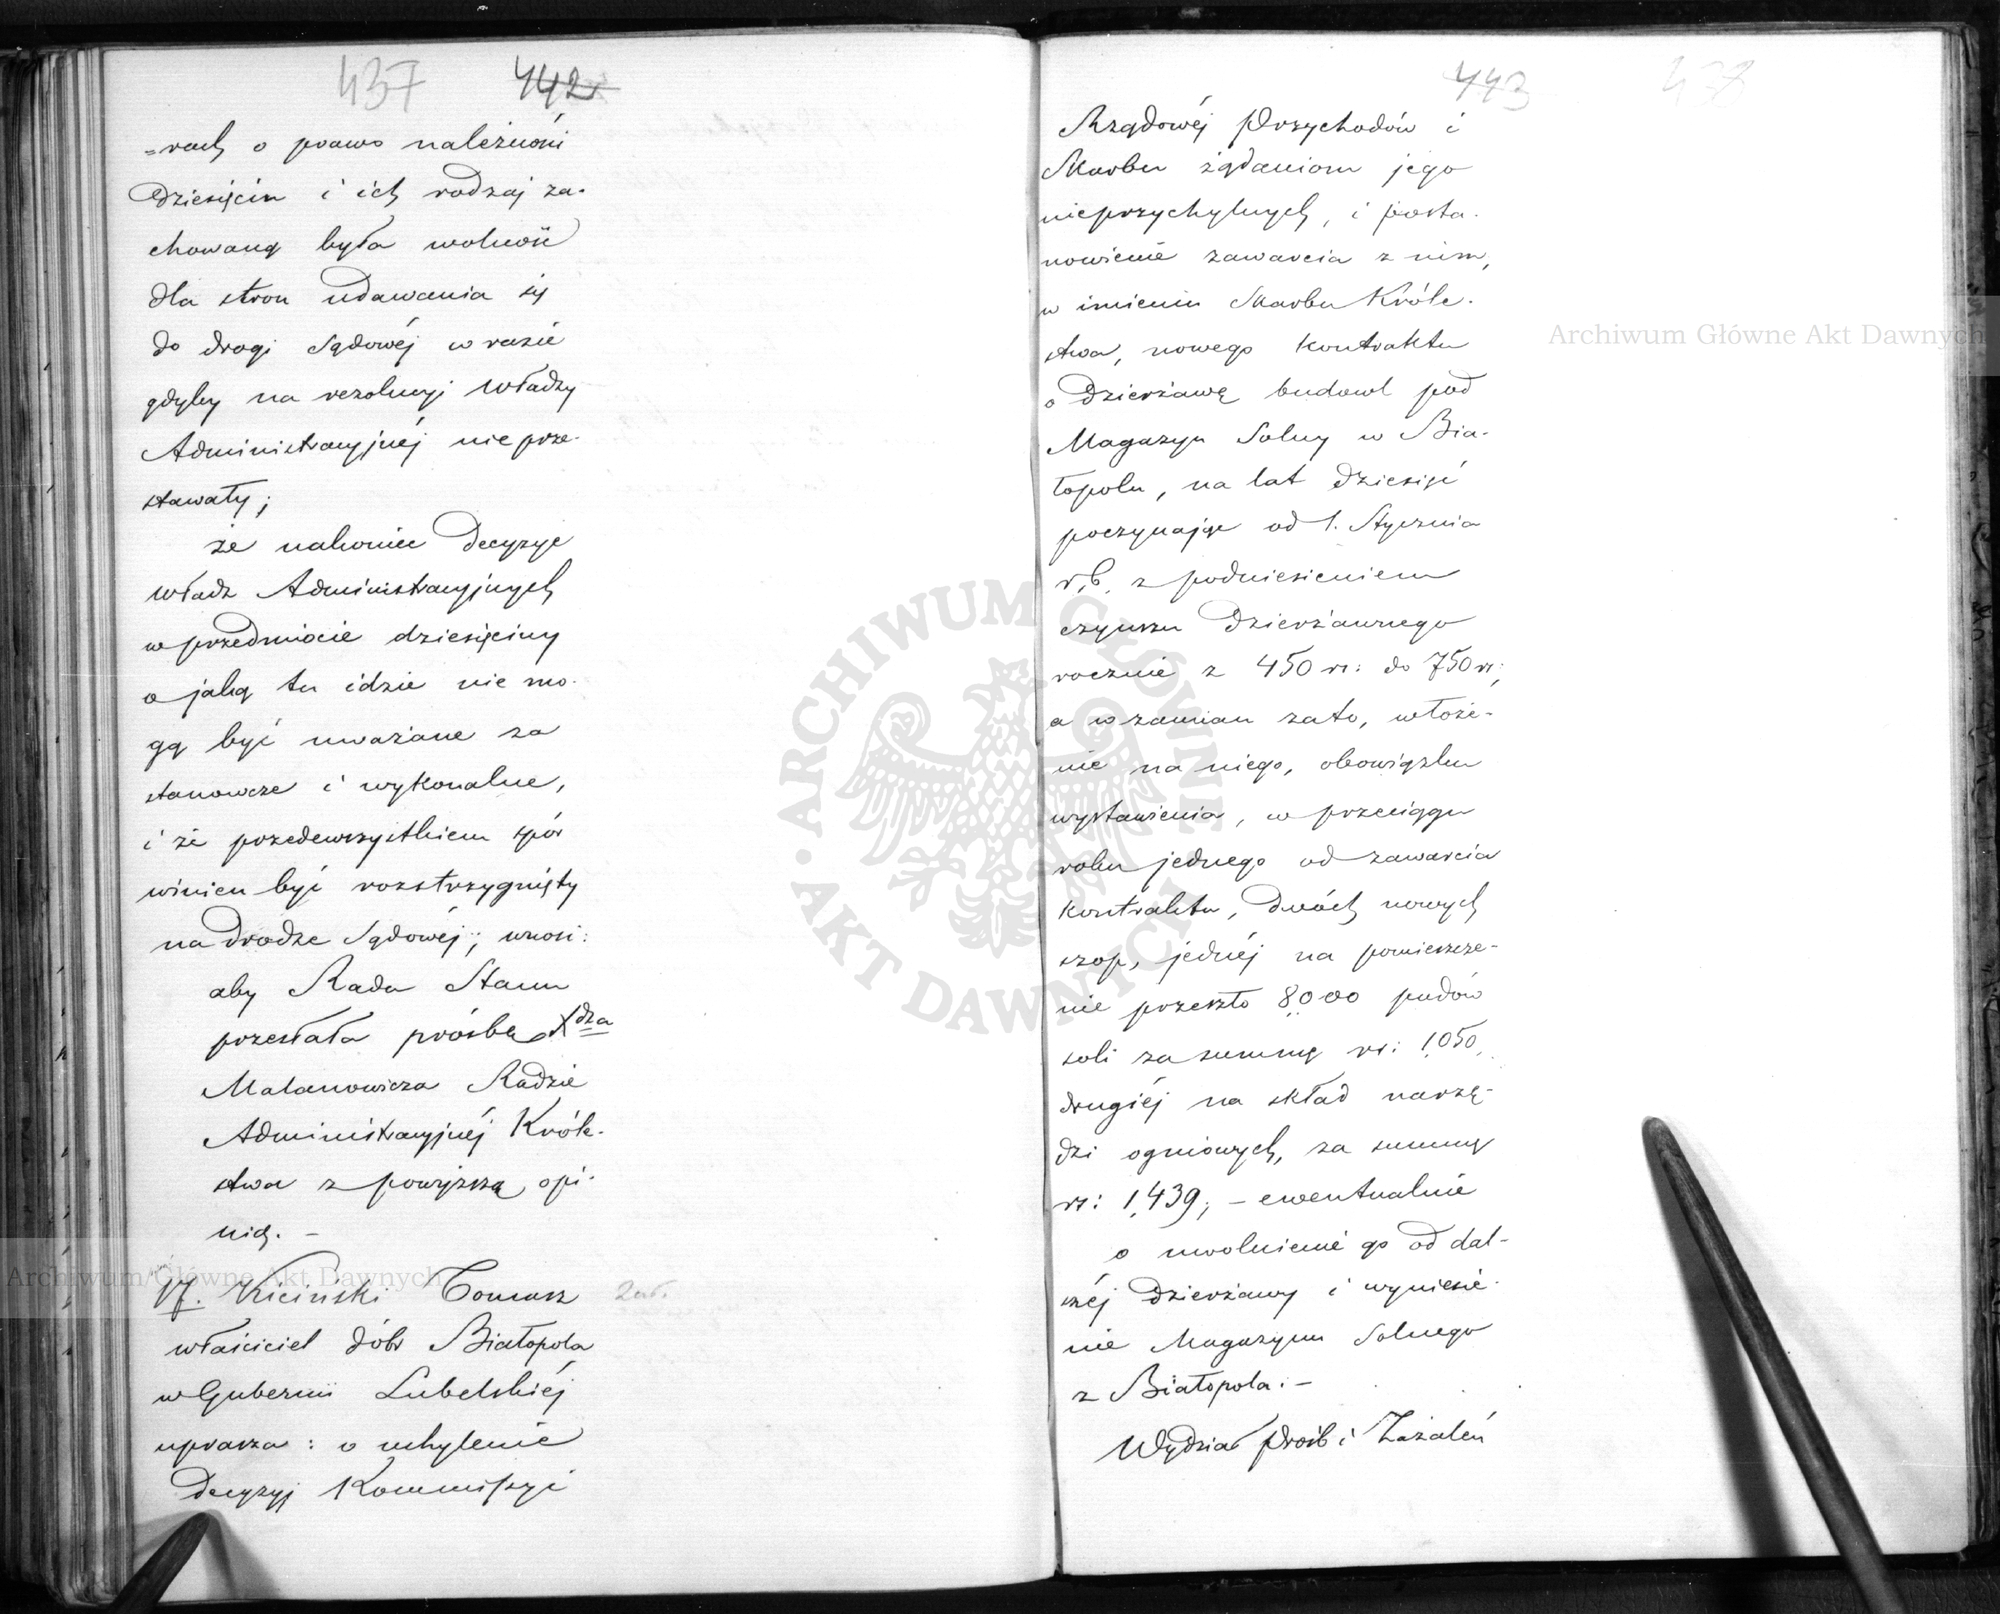 437 442
=rach o prawo należności
Dziesięcin i ich rodzaj za-
chowaną była wolność
dla stron udawania się
do drogi Sądowéj w razie
gdyby na rezolucyi Władzy
Administracyjnéj nie prze-
stawały;
że nakoniec Decyzye
Władz Administracyjnych
w przedmiocie dziesięciny
o jaką tu idzie nie mo-
gą być uważane za
stanowcze i wykonalne,
i że przedewszystkiem spór
winien być rozstrzygnięty
na drodze Sądowéj; wnosi:
aby Rada Stanu
przesłała prośbę Xdza
Malanowicza Radzie
Administracyjnéj Króle-
stwa z powyższą opi-
nią. –
17. Kiciński Tomasz
właściciel dóbr Białopola
w Gubernii Lubelskiéj
uprasza: o uchylenie
Decyzyj Kommissyi
443 438
Rządowéj Przychodów i
Skarbu żądaniom jego
nieprzychylnych, i posta-
nowienie zawarcia z nim,
w imieniu Skarbu Króle-
stwa, nowego kontraktu
o Dzierżawę budowl pod
Magazyn Solny w Bia-
łopolu, na lat dziesięć
poczynając od 1. Stycznia
r. b. z podniesieniem
czynszu Dzierżawnego
rocznie z 450 rs: do 750 rs;
a w zamian zato, włoże-
nie na niego, obowiązku
wystawienia, w przeciągu
roku jednego od zawarcia
kontraktu, dwóch nowych
szop, jednéj na pomieszcze-
nie przeszło 8000 pudów
soli za summę rs: 1,050,
drugiéj na skład narzę-
dzi ogniowych, za summę
rs: 1,439; – ewentualnie
o uwolnienie go od dal-
széj Dzierżawy i wyniesie-
nie Magazynu Solnego
z Białopola. –
Wydział Próśb i Zażaleń
Archiwum Główne Akt Dawnych
Archiwum Główne Akt Dawnych
ARCHIWUM GŁÓWNE · AKT DAWNYCH ·